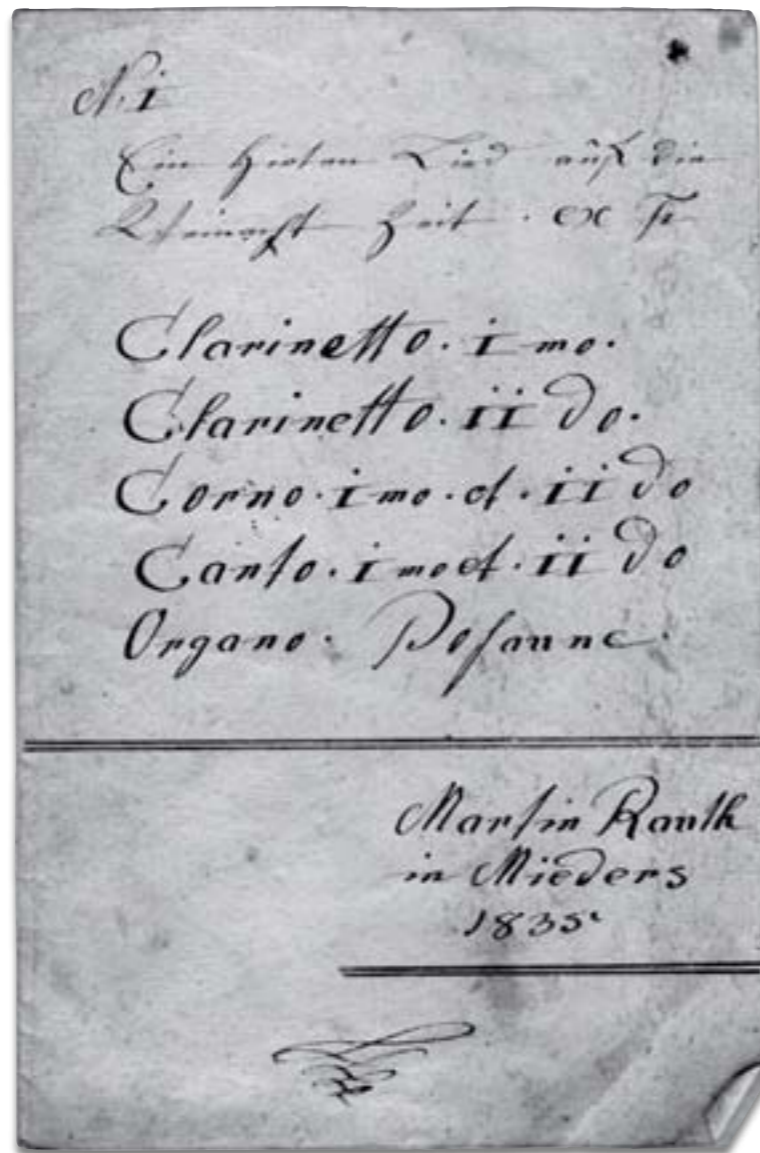 N. i
Ein Hirten Lied auf die
Weinacht Zeit. ex F
Clarinetto. imo.
Clarinetto. iido.
Corno. imo. et. iido
Canto. imo et. iido
Organo. Posaune.
Martin Rauth
in Mieders
1835.